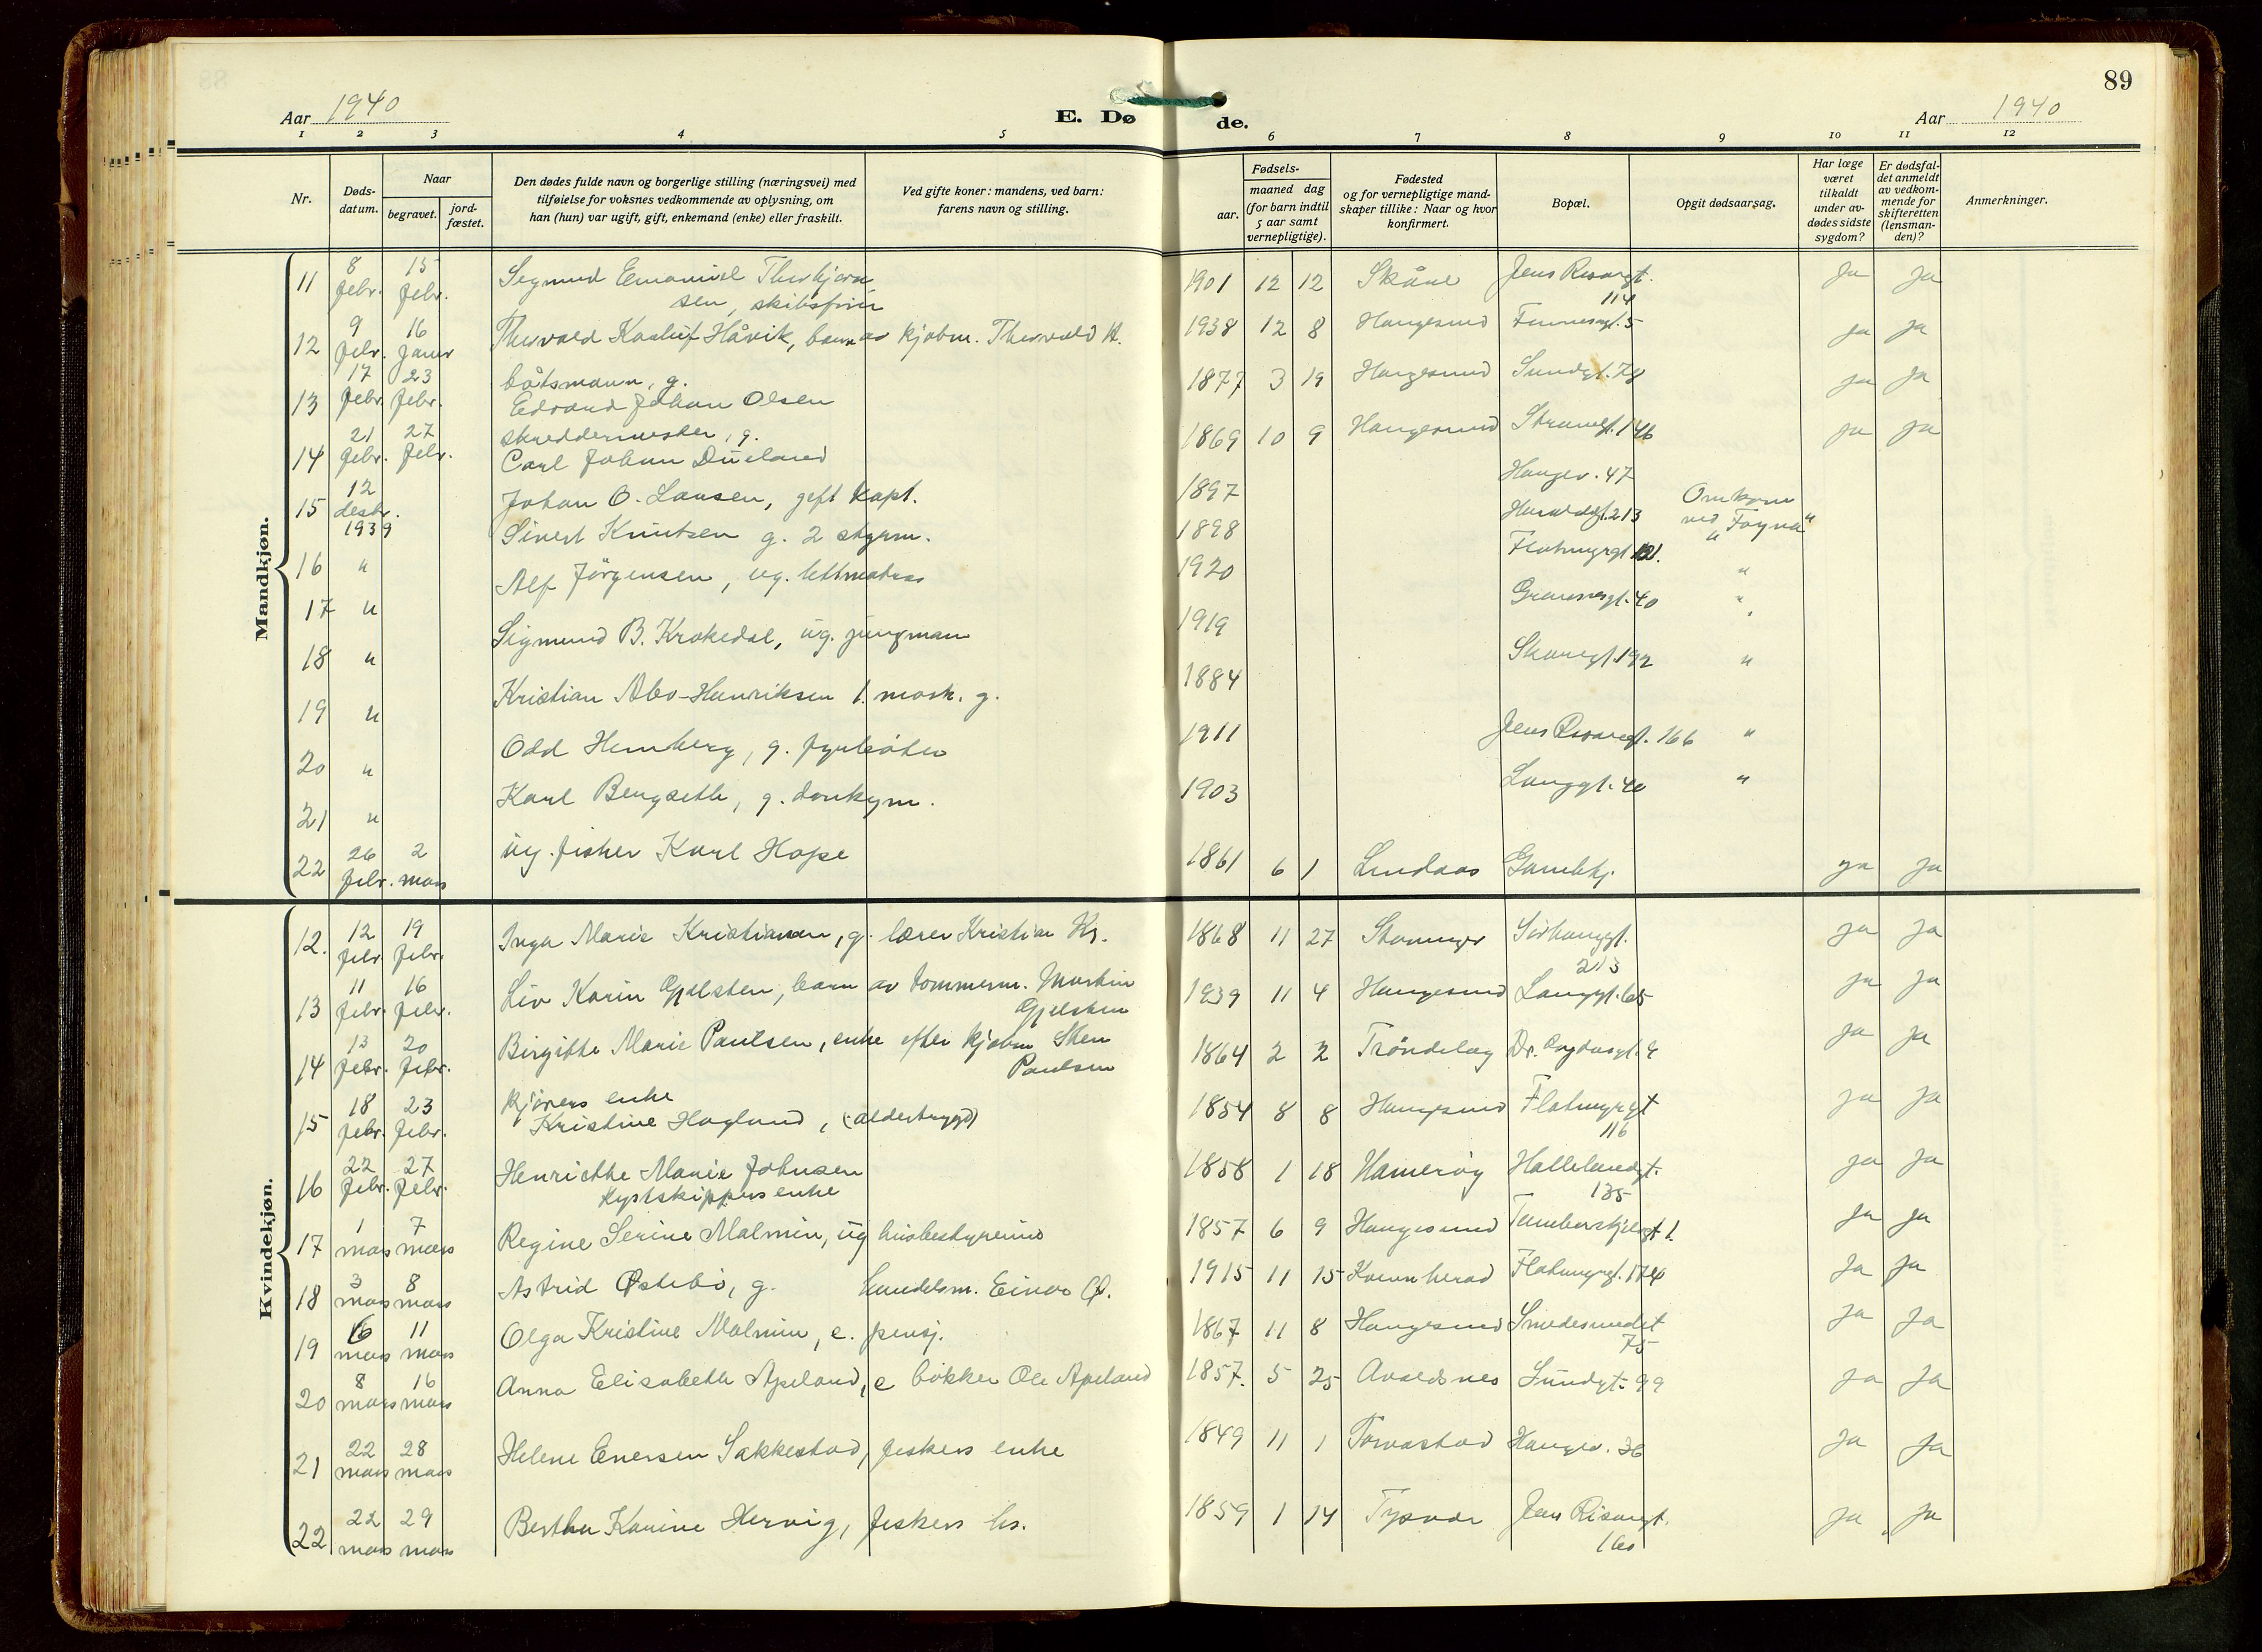 89
Aar 1940
E. Dø
de.
Aar 1940
1 2 3 4 5 6 7 8 9 10 11 12
Nr.
Døds-
datum.
Naar
begravet.
jord-
fæstet.
Den dødes fulde navn og borgerlige stilling (næringsvei) med
tilføielse for voksnes vedkommende av oplysning, om
han (hun) var ugift, gift, enkemand (enke) eller fraskilt.
Ved gifte koner: mandens, ved barn:
farens navn og stilling.
Fødsels-
aar.
maaned dag
(for barn indtil
5 aar samt
vernepligtige).
Fødested
og for vernepligtige mand-
skaper tillike: Naar og hvor
konfirmert.
Bopæl.
Opgit dødsaarsag.
Har læge
været
tilkaldt
under av-
dødes sidste
sygdom?
Er dødsfal-
det anmeldt
av vedkom-
mende for
skifteretten
(lensman-
den)?
Anmerkninger.
Mandkjøn.
11 8 febr. 15 febr. Sigmund Emanuel Thorbjørn
sen, skibsfører 1901 12 12 Skåne Jens Risørgt. 114 Ja Ja
12 9 febr. 16 Thorvald Håvik, barn av kjøbm. Thorvald H. 1938 12 8 Haugesund 5 ja ja
13 17 febr. 23 febr. båtsmann, g.
Edvard Johan Olsen 1877 3 19 Haugesund Sundgt. 78 ja ja
14 21 febr. 27 febr. skreddermester, g.
Carl Johan Dueland 1869 10 9 Haugesund Strandgt. 146 ja ja
15 12 desbr. 1939 Johan O. Larsen, gift kapt. 1897 Haugev. 47 Omkom
ved "Foyna"
16 " Sivert Knutsen g. 2 styrm. 1898 Haraldsgt. 213 "
17 " Alf Jörgensen, ug. lettmatros 1920 Flotmyrgt 121. "
18 " Sigmund B. Krokedal, ug. jungman 1919 40 "
19 " Kristian Abo-Henriksen 1. mask. g. 1884 Skaregt. 192 "
20 " Odd Hemberg, g. fyrbøter 1911 Jens Risørgt. 166 "
21 " Karl Bengseth, g. donkeym. 1903 Langgt. 40 "
22 26 febr. 2 mars ug. fisker Karl Hope 1861 6 1 Lindaas Gamlehj. ja ja
Kvindekjøn.
12. 12 febr. 19 febr. Inga Marie Kristiansen, g. lærer Kristian Kr. 1868 11 27 Stavanger Sørhauggt. 213 ja ja
13 11 febr. 16 febr. Liv Karin Gjelsten, barn av tømmerm. Martin
Gjelsten 1939 11 4 Haugesund Langgt. 65 ja ja
14 13 febr. 20 febr. Birgitte Marie Paulsen, enke efter kjøbm Sten
Paulsen 1864 2 2 Trøndelag ja ja
15 18 febr. 23 febr. kjørers enke
Kristine Hagland, (alderstrygd) 1854 8 8 Haugesund Flotmyrgt 116 ja ja
16 22 febr. 27 febr. Henriette Marie Johnsen
kystskippers enke 1858 1 18 Hamerøy Hallelandgt. 135 ja ja
17 1 mars 7 mars Regine Serine Malmin, ug husbestyrerinne 1857 6 9 Haugesund 1. ja ja
18 3 mars 8 mars Astrid Østebö, g. handelsm. Einar Ø. 1915 11 15 Kvinnherad Flotmyrgt. 174 ja ja
19 6 mars 11 mars Olga Kristine Malmin, e. pensj. 1867 11 8 Haugesund Smedesundet 75 ja ja
20 8 mars 16 mars Anna Elisabeth Apeland, e bøkker Ole Apeland 1857. 5 25 Avaldsnes Sundgt. 99 ja ja
21 22 mars 28 mars Helene Enersen Sakkestad, fiskers enke 1849 11 1 Torvastad Haugev. 36 ja ja
22 22 mars 29 mars Bertha Karine Hervig, fiskers hs. 1859 1 14 Tysvær Jens Risørgt. 160 ja ja